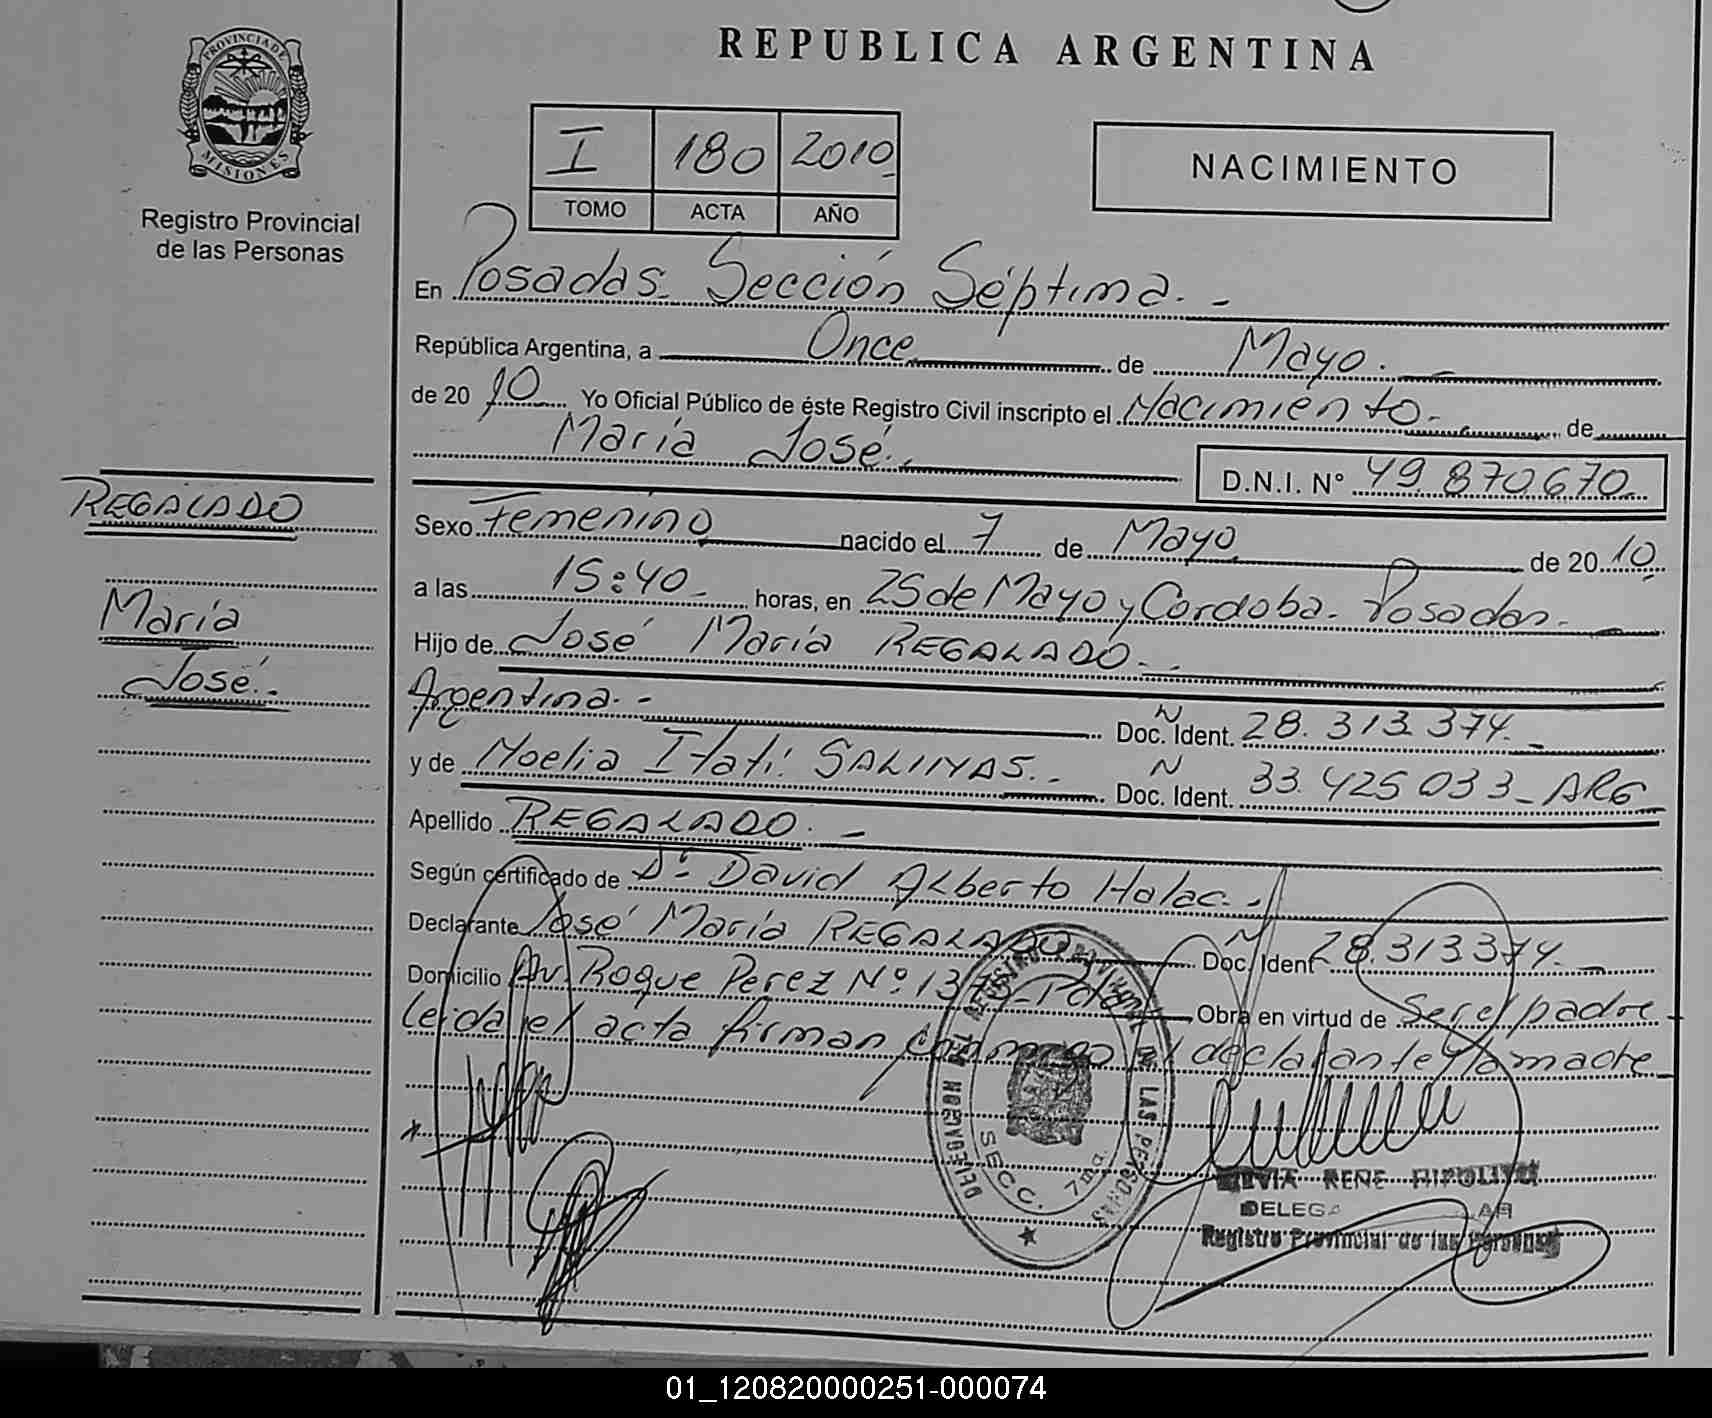 REPUBLICA ARGENTINA
PROVINCIA DE
MISIONES
Registro Provincial
de las Personas
I 180 2010
TOMO ACTA AÑO
NACIMIENTO
En Posadas. Sección Séptima. -
República Argentina, a Once de Mayo.
de 20 10 Yo Oficial Público de éste Registro Civil inscripto el Nacimiento. de
María José.
D.N.I. N° 49.870.670
REGALADO
María
José.
Sexo Femenino nacido el 7 de Mayo de 20 10
a las 15:40 horas, en 25 de Mayo y Cordoba. Posadas.
Hijo de José María REGALADO.
Argentina. - Doc. Ident. N 28.313.374.
y de Noelia Itatí SALINAS. Doc. Ident. N 33.425.033 - ARG
Apellido REGALADO. -
Según certificado de Dr. David Alberto Halac. -
Declarante José María REGALADO Doc. Ident N 28.313.374. -
Domicilio Av. Roque Perez N° Obra en virtud de Ser el padre
leida el acta firman conmigo el declarante y la madre
DELEGACION DEL REGISTRO PROVINCIAL DE LAS PERSONAS
SECC. 7ma.
RENE HIPOLITO
Registro Provincial de las Personas
01_120820000251-000074